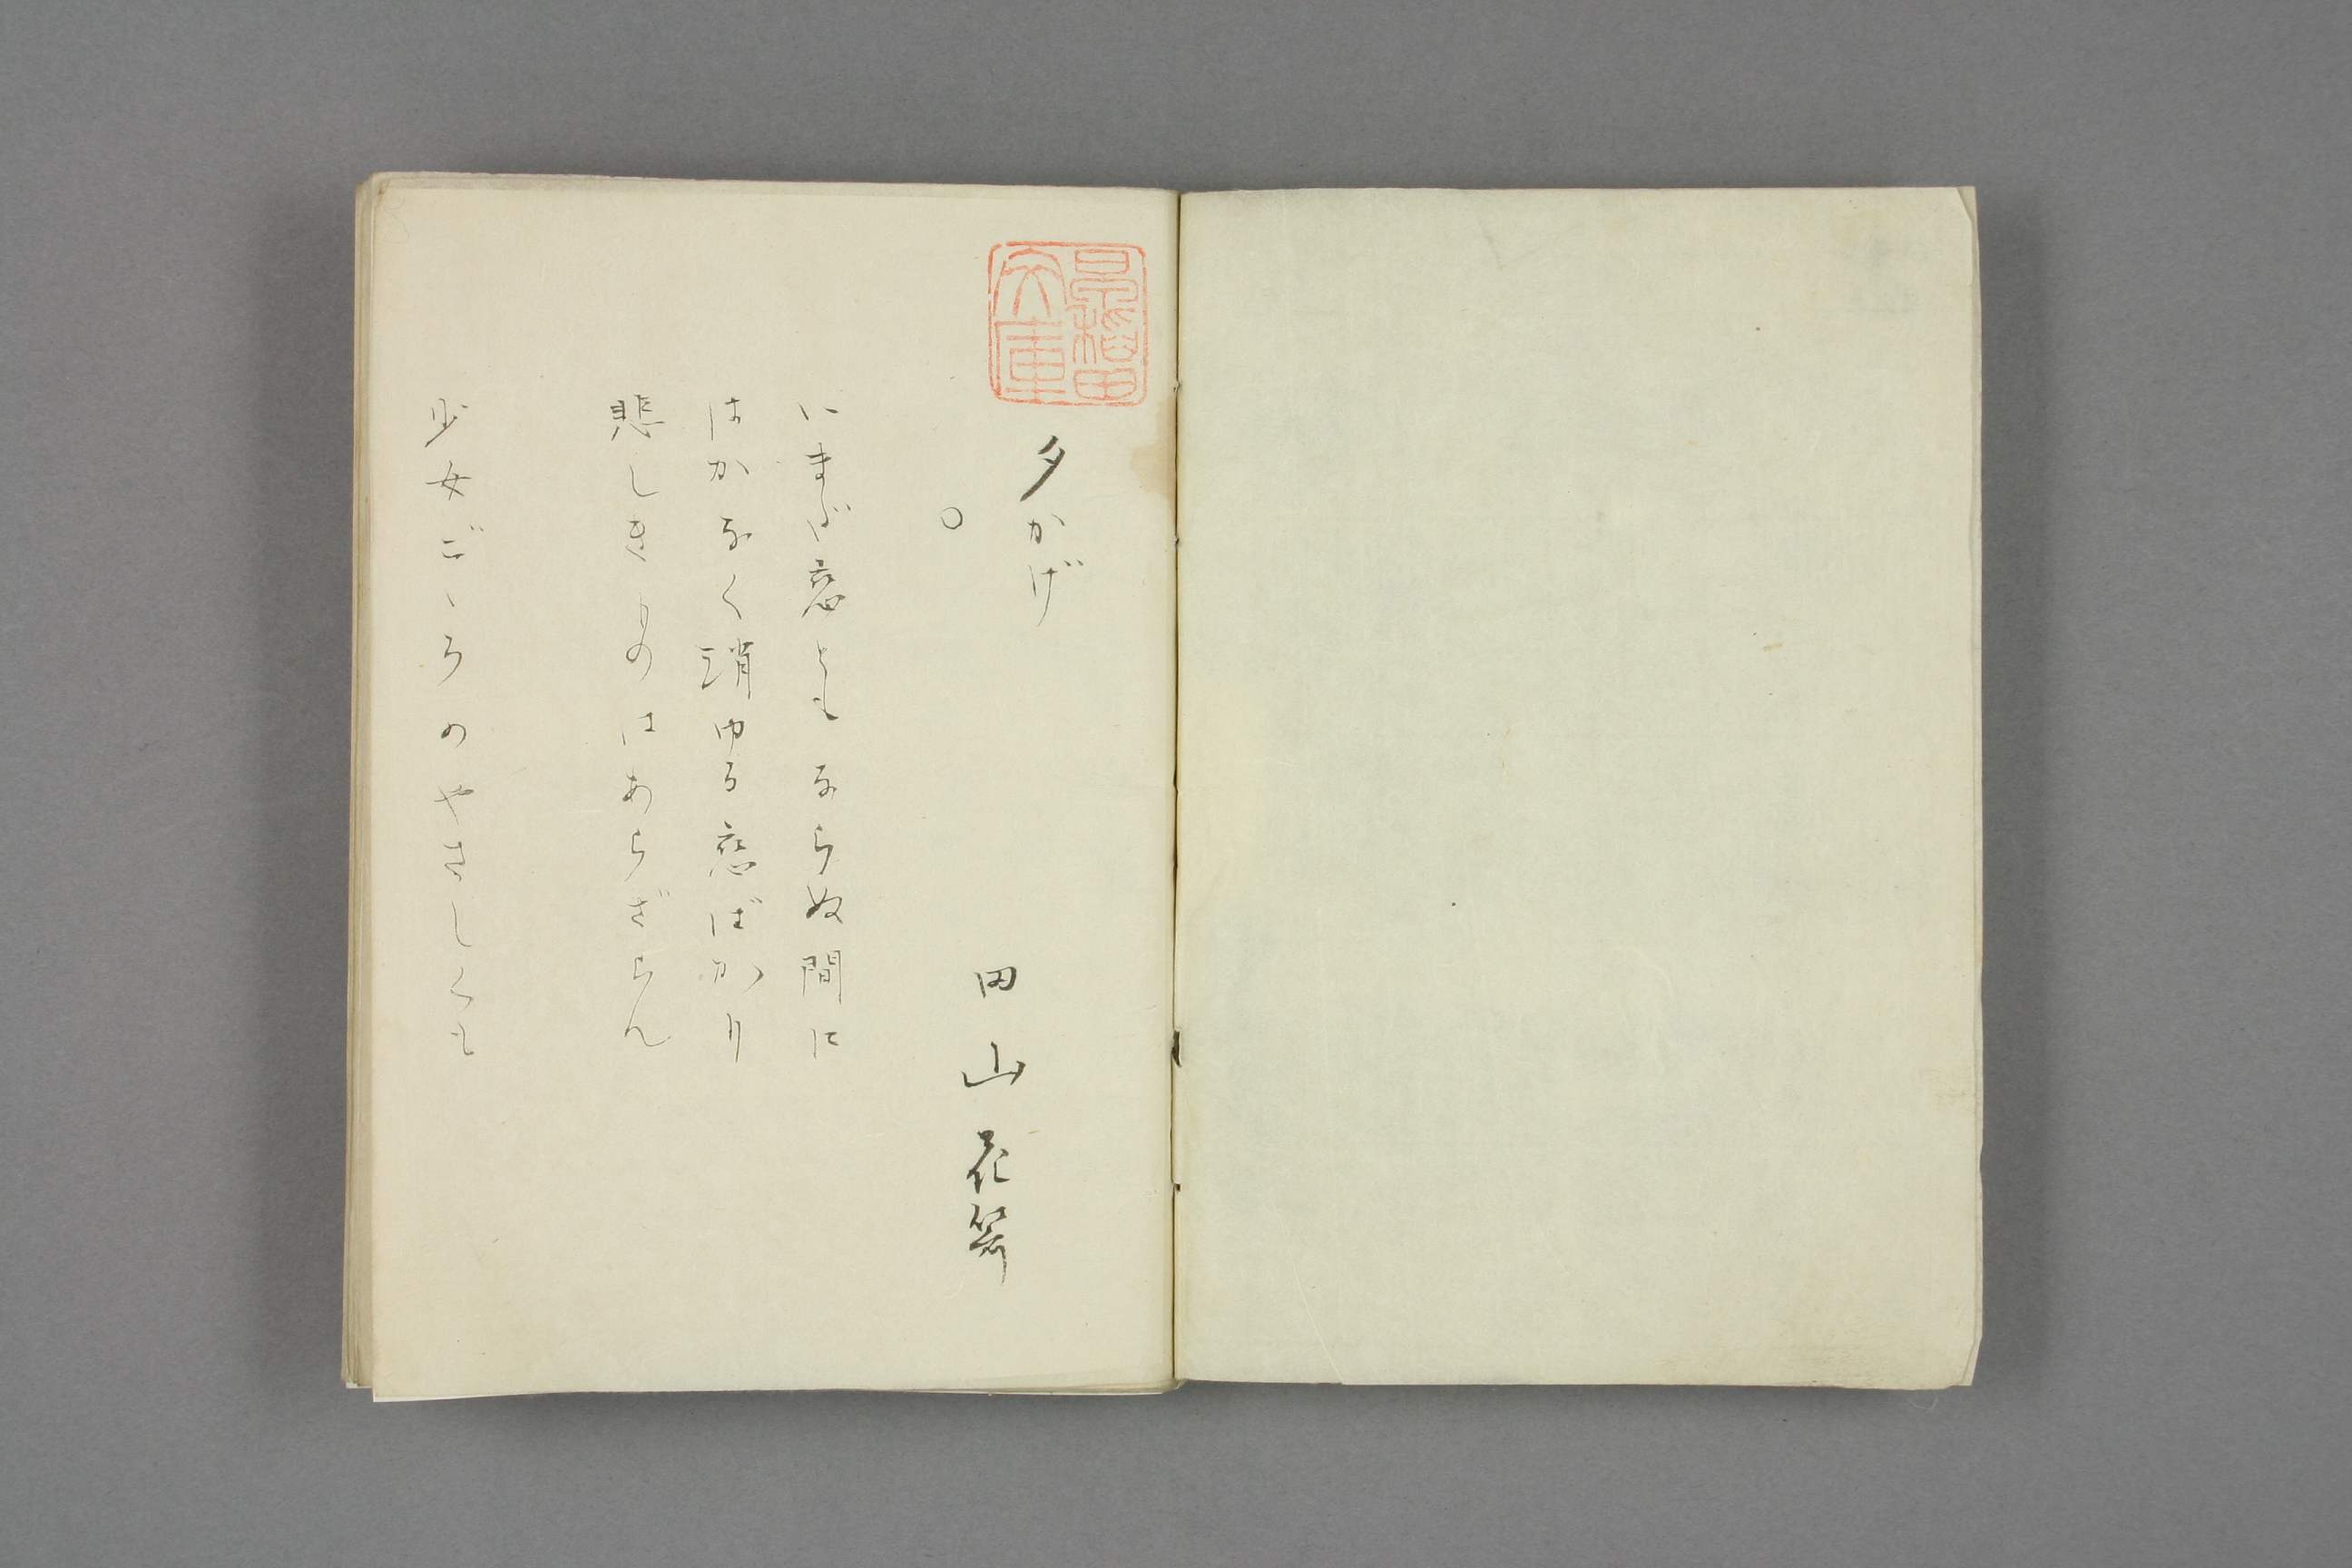 早稲田文庫
夕かげ
○
田山花袋
いまだ恋ともならぬ間に
はかなく消ゆる恋ばかり
悲しきものはあらざらん
少女ごゝろのやさしくも